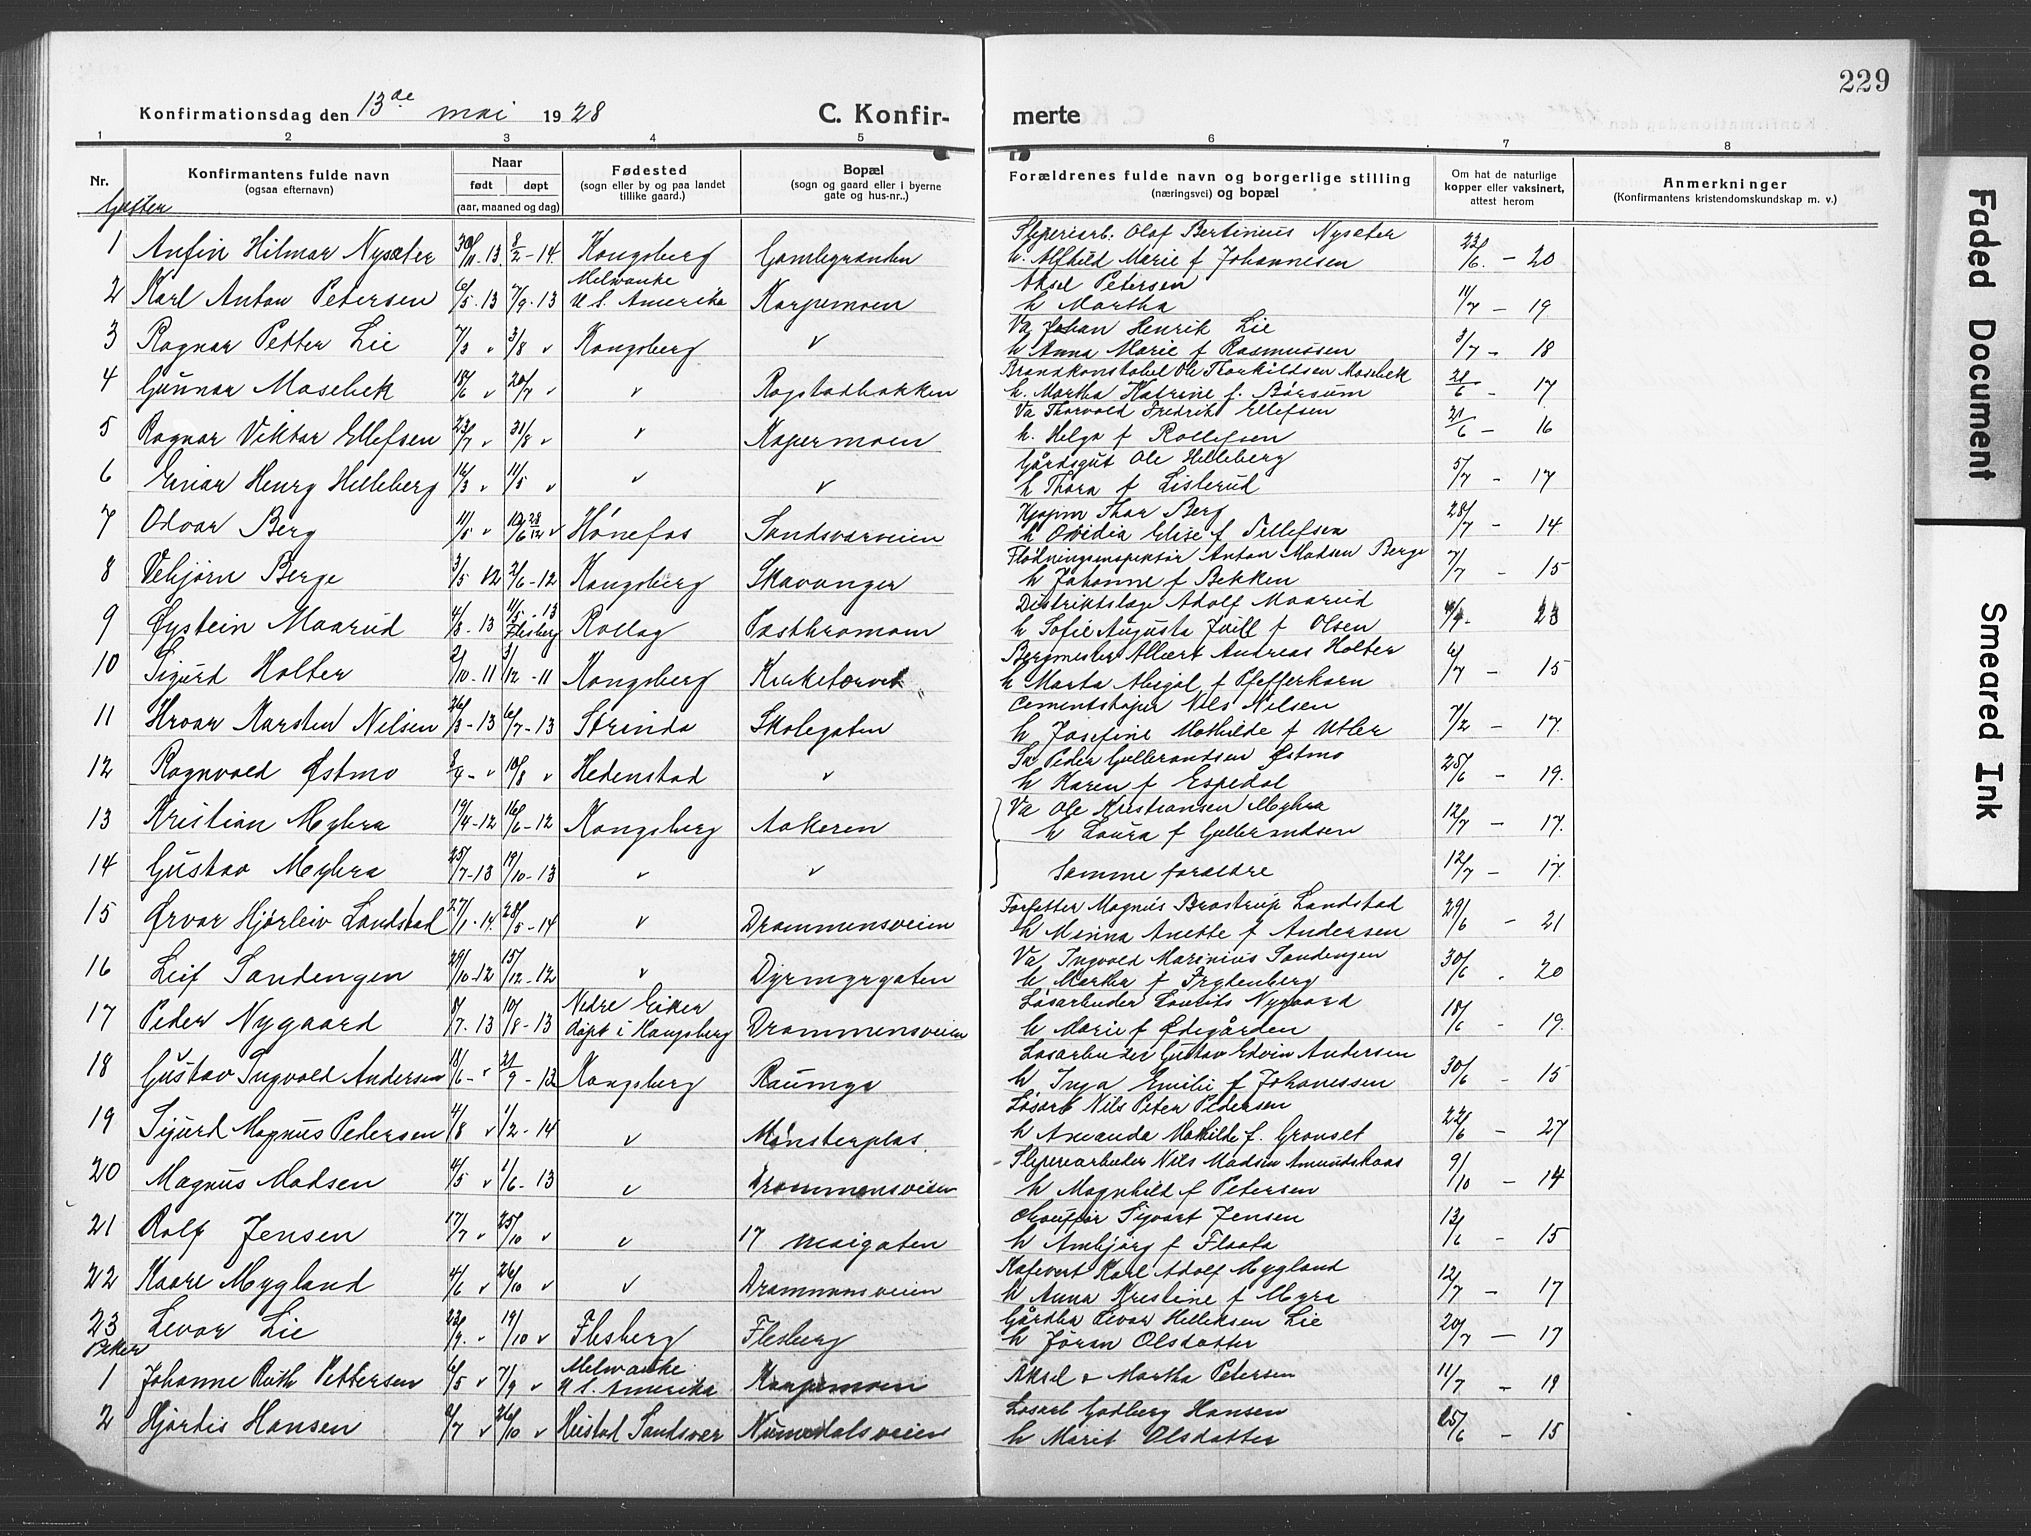 229
Konfirmationsdag den 13de mai 1928
C. Konfir-
merte
1 2 3 4 5 6 7 8
Nr.
Konfirmantens fulde navn
(ogsaa efternavn)
Naar
født døpt
(aar, maaned og dag)
Fødested
(sogn eller by og paa landet
tillike gaard.)
Bopæl
(sogn og gaard eller i byerne
gate og hus-nr..)
Forældrenes fulde navn og borgerlige stilling
(næringsvei) og bopæl
Om hat de naturlige
kopper eller vaksinert,
attest herom
Anmerkninger
(Konfirmantens kristendomskundskap m. v.)
Gutter
Sliperiarb. Olaf Bertinius Nysæter
1 Anfin Hilmar Nysæter 30/11-13. 8/2-14. Kongsberg Gamlegrænden h. Alfhild Marie f Johannisen 23/6. - 20
Melwauke Aksel Petersen
2 Karl Anton Petersen 6/5-13 7/9-13 U. S. Amerika Karpemoen h Martha 11/7 - 19
Va Johan Henrik Lie
3 Ragnar Petter Lie 7/3 v 3/8 v Kongsberg v h Anna Marie f Rasmussen 3/7 - 18
Brandkonstabel Ole Thorkildsen Mosebek
4 Gunnar Mosebek 18/6 v 20/7 v v Rogstadbakken h. Martha Katrine f. Børsum 28/6 - 17
Va Thorvald Fredrik Ellefsen
5 Ragnar Viktor Ellefsen 23/7 v 31/8 v v Kapermoen h. Helga f Rollefsen 21/6 - 16
Gårdsgut Ole Helleberg
6 Einar Henry Helleberg 16/3 v 11/5 v v v h Thora f Lislerud 5/7 - 17
Kjøpm Thor Berg
7 Odvar Berg 11/5 v 10/6 28/12 v Hønefos Sandsværveien h Ovidia Elise f Tellefsen 28/7 - 14.
Fløtningsinspektør Anton Madsen Berge
8 Vebjørn Berge 3/5 12 2/6-12 Kongsberg Skavanger h Johanne f Bekken 7/7 - 15
Distriktslæge Adolf Maarud
9 Øystein Maarud 4/8-13 11/5-13 Flesberg Rollag h Sofie Augusta f Olsen 23
Bergmester Albert Andreas Holter
10 Sigurd Holter 2/10-11 3/12-11 Kongsberg Kirketorvet h Marta Abigal f Pfefferkorn 6/7 - 15
Cementstøper Nils Nilsen
11 Hroar Karsten Nilsen 26/3-13 6/7-13 Strinda Skolegaten h Josefine Mathilde f Utler 7/2 - 17.
Peder Gulbrandsen Østmo
12 Ragnvald Østmo 8/4- v 10/8 v Hedenstad v h Karen f Espedal 25/6 - 19.
Va Ole Kristiansen Myhra
13 Kristian Myhra 19/4-12 16/6-12 Kongsberg Aakeren h Laura f Gulbrandsen 12/7 - 17.
14 Gustav Myhra 25/7-13 19/10-13 v v Samme foræ­ldre 12/7 - 17.
Forfatter Magnus Brostrup Landstad
15 Ørvar Hjørleiv Landstad 27/1-14. 28/5-14 v Drammensveien h Minna Anette f Andersen 29/6 - 21
Va Ingvald Marinius Sandengen
16 Leif Sandengen 29/10-12 15/12-12 v Dyrmyrgaten h Martha f Frydenberg 30/6 . 20
Nedre Eiker Løsarbeider Lauritz Nygaard
17 Peder Nygaard 8/7-13 10/8-13 døpt i Kongsberg Drammensveien h Marie f Ødegården 18/6 - 19.
Løsarbeider Gustav Edvin Andersen
18 Gustav Ingvald Andersen 13/6- v 21/9-13 Kongsberg Raumyr h Inga Emilie f Johanessen 30/6 - 15
Løsarb Nils Peter Pedersen
19 Sigurd Magnus Pedersen 4/8 v 1/2-14 v Mønsterplas. h Amanda Mathilde f. Gronset 22/6 - 27
Sliperiarbeider Nils Madsen Amundskaas
20 Magnus Madsen 4/5 v 1/6-13 v Drammensveien h Magnhild f Petersen 9/10 - 14
Chauffør Sigvart Jensen
21 Rolf Jensen 17/7 v 25/10 v v 17 maigaten h Ambjørg f Flaata 13/6 - 15
Kafevert Karl Adolf Mygland
22 Kaare Mygland 4/6 v 26/10 v v Drammensveien h Anna Kristine f Myra 12/7 - 17
Gårdbr Levor Helliksen Lie
23 Levor Lie 22/9. v 19/10 v Flesberg Flesberg h Jøran Olsdatter 20/7 - 17
Piker
Melwauke
1 Johanne Ruth Pettersen 6/5 v 7/9 v U S. Amerika Karpemoen Aksel & Martha Petersen 11/7 - 19
Løsarb Godberg Hansen
2 Hjørdis Hansen 8/7 v 26/10 v Heistad Sandsvær Numedalsveien h Marit Olsdatter 25/6 - 15
Faded Document
Smeared Ink